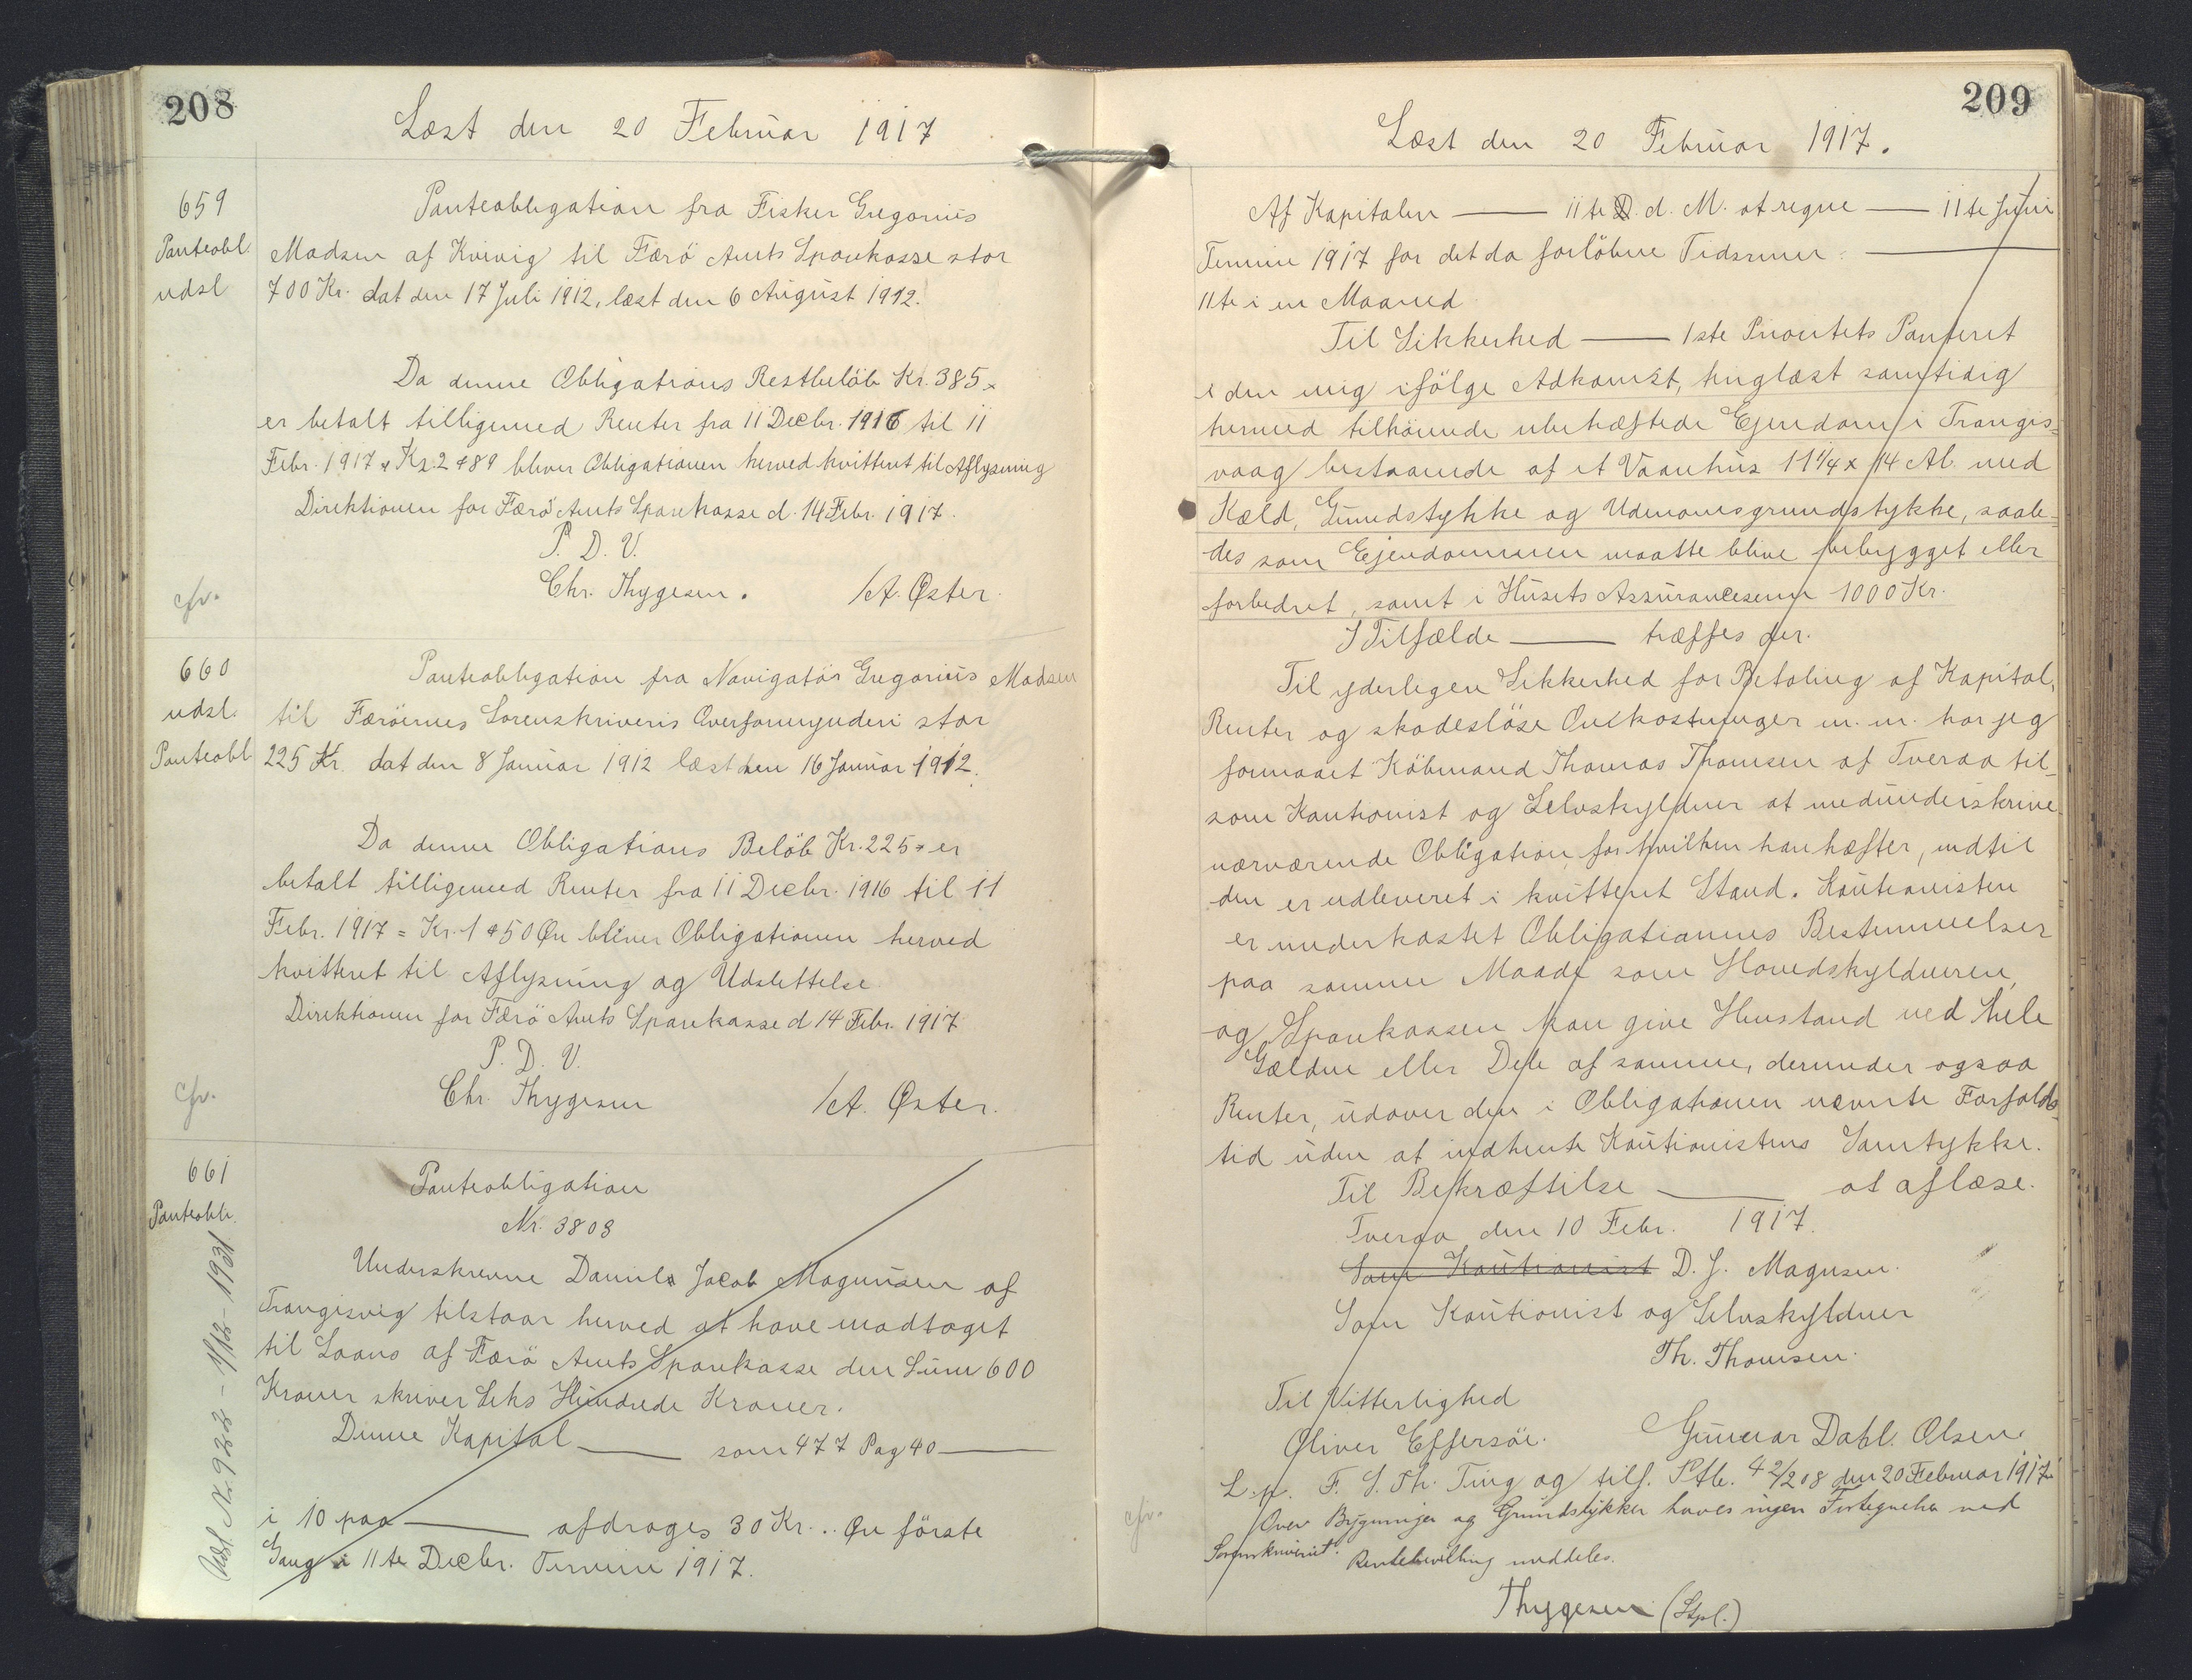 208
Læst den 20 Februar 1917
659
Panteobl.
udsl
Panteobligation fra Fisker Gregorius
Madsen af Kvivig til Færö Amts Sparekasse stor
700 Kr. dat den 17 Juli 1912, læst den 6 August 1912.
Da denne Obligations Restbelöb Kr. 385,,
er betalt tilligemed Renter fra 11 Decbr. 1916 til 11
Febr. 1917 = Kr. 2 + 89 bliver Obligationen herved kvitteret til Aflysning
Direktionen for Færö Amts Sparekasse d. 14 Febr. 1917.
P. D. V.
Chr. Thygesen. /A. Øster.
cfr.
660
udsl.
Panteobl
Panteobligation fra Navigatör Gregorius Madsen
til Færöernes Sorenskriveris Overformynderi stor
225 Kr. dat den 8 Januar 1912 læst den 16 Januar 1912.
Da denne Obligations Belöb Kr. 225,, er
betalt tilligemed Renter fra 11 Decbr. 1916 til 11
Febr. 1917 = Kr. 1 + 50 Øre bliver Obligationen herved
kvitteret til Aflysning og Udslettelse.
Direktionen for Færö Amts Sparekasse d 14 Febr. 1917
P. D. V.
Chr. Thygesen /A. Øster.
cfr.
661
Panteobl.
Udsl. Nr. 9222 - 1/12 - 1931
Panteobligation
Nr. 3808
Underskrevne Daniel Jacob Magnusen af
Trangisvig tilstaar herved at have modtaget
til Laans af Færö Amts Sparekasse den Sum 600
Kroner skriver Seks Hundrede Kroner.
Denne Kapital —— som 477 Pag 40 ——
i 10 paa —— afdrages 30 Kr. .. Øre förste
Gang i 11te Decbr. Termin 1917.
209
Læst den 20 Februar 1917.
Af Kapitalen —— 11te D. d. M. at regne —— 11te Juni
Termin 1917 for det da forløbne Tidsrum: ——
11te i en Maaned
Til Sikkerhed —— 1ste Prioritets Panteret
i den mig ifölge Adkomst, tinglæst samtidig
hermed tilhörende ubehæftede Ejendom i Trangis=
vaag bestaaende af et Vaanhus 11 1/4 x 14 Al. med
Kæld, Grundstykke og Udenomsgrundstykke, saale=
des som Ejendommen maatte blive bebygget eller
forbedret, samt i Husets Assurancesum 1000 Kr.
I Tilfælde —— træffes der.
Til yderligere Sikkerhed for Betaling af Kapital,
Renter og skadeslöse Omkostninger m. m. har jeg
formaaet Köbmand Thomas Thomsen af Tveraa til
som Kautionist og Selvskyldner at medunderskrive
nærværende Obligation for hvilken han hæfter, indtil
den er udleveret i kvitteret Stand. Kautionisten
er underkastet Obligationens Bestemmelser
paa samme Maade som Hovedskyldneren,
og Sparekassen kan give Henstand ved hele
Gælden eller Dele af samme, derunder ogsaa
Renter, udover den i Obligationen nævnte Forfalds=
tid uden at indhente Kautionistens Samtykke.
Til Bekræftelse —— at aflæse.
Tveraa den 10 Febr. 1917.
Som Kautionist D. J. Magnsen.
Som Kautionist og Selvskyldner
Th. Thomsen.
Til Vitterlighed
Oliver Effersöe. Gunnar Dahl. Olsen.
L. p. F. S. Th. Ting og tilf. Ptb. 42/208 den 20 Februar 1917
cfr.
Over Bygninger og Grundstykker haves ingen Fortegnelse ved
Sorenskriveriet. Rentebevilling meddeles.
Thygesen (Stpl.)